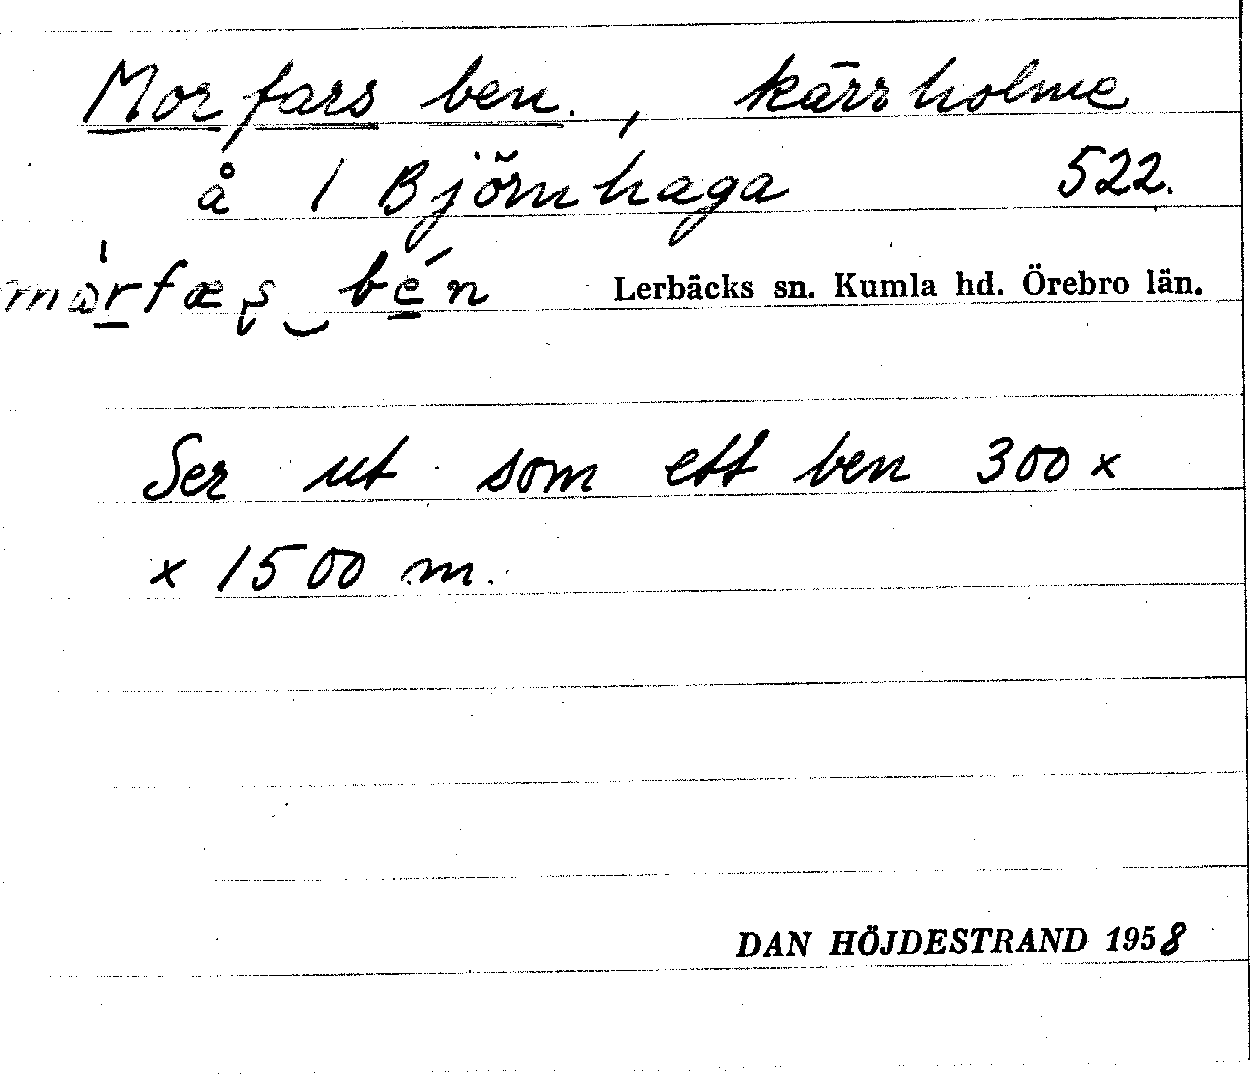 Morfars ben., kärrholme
å 1 Björnhaga 522.
mòrfæṣ‿bén Lerbäcks sn. Kumla hd. Örebro län.
Ser ut som ett ben 300 x
x 1500 m.
DAN HÖJDESTRAND 1958